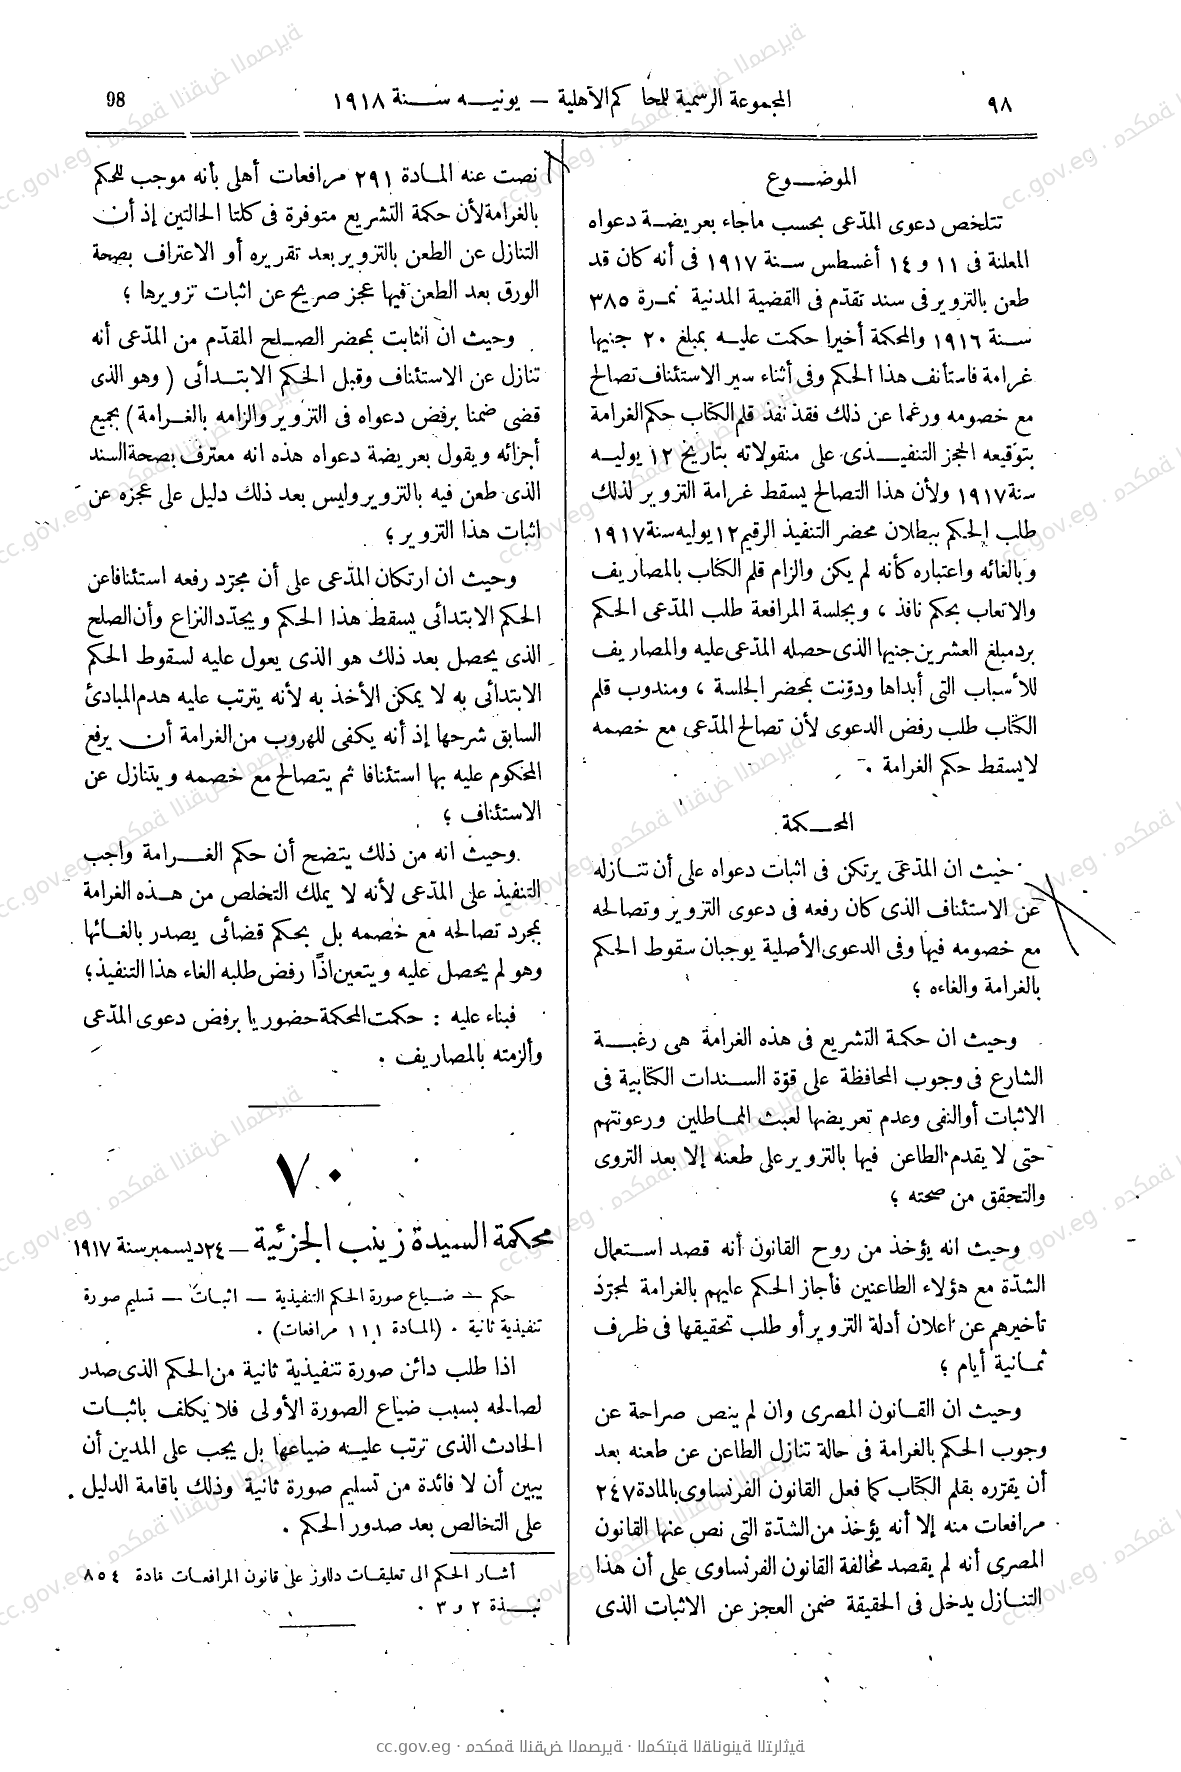 ٩٨
المجموعة الرسمية للمحاكم الأهلية – يونيه سنة ١٩١٨
98
الموضوع
تتلخص دعوى المدّعى بحسب ماجاء بعريضة دعواه
المعلنة فى ١١ و ١٤ أغسطس سنة ١٩١٧ فى أنه كان قد
طعن بالتزوير فى سند تقدّم فى القضية المدنية نمرة ٣٨٥
سنة ١٩١٦ والمحكمة أخيرا حكمت عليه بمبلغ ٢٠ جنيها
غرامة فاستأنف هذا الحكم وفى أثناء سير الاستئناف تصالح
مع خصومه ورغما عن ذلك فقد نفذ قلم الكتاب حكم الغرامة
بتوقيعه الحجز التنفيذى على منقولاته بتاريخ ١٢ يوليه
سنة ١٩١٧ ولأن هذا التصالح يسقط غرامة التزوير لذلك
طلب الحكم ببطلان محضر التنفيذ الرقيم ١٢ يوليه سنة ١٩١٧
وبالغائه واعتباره كأنه لم يكن والزام قلم الكتاب بالمصاريف
والاتعاب بحكم نافذ ، وبجلسة المرافعة طلب المدّعى الحكم
برد مبلغ العشرين جنيها الذى حصله المدّعى عليه والمصاريف
للأسباب التى أبداها ودوّنت بمحضر الجلسة ، ومندوب قلم
الكتاب طلب رفض الدعوى لأن تصالح المدّعى مع خصمه
لا يسقط حكم الغرامة .
المحكمة
حيث ان المدّعى يرتكن فى اثبات دعواه على أن تنازله
عن الاستئناف الذى كان رفعه فى دعوى التزوير وتصالحه
مع خصومه فيها وفى الدعوى الأصلية يوجبان سقوط الحكم
بالغرامة والغاءه ؛
وحيث ان حكمة التشريع فى هذه الغرامة هى رغبة
الشارع فى وجوب المحافظة على قوّة السندات الكتابية فى
الاثبات أو النفى وعدم تعريضها لعبث المماطلين ورعونتهم
حتى لا يقدم الطاعن فيها بالتزوير على طعنه إلا بعد التروى
والتحقق من صحته ؛
وحيث انه يؤخذ من روح القانون أنه قصد استعمال
الشدّة مع هؤلاء الطاعنين فأجاز الحكم عليهم بالغرامة لمجرّد
تأخيرهم عن اعلان أدلة التزوير أو طلب تحقيقها فى ظرف
ثمانية أيام ؛
وحيث ان القانون المصرى وان لم ينص صراحة عن
وجوب الحكم بالغرامة فى حالة تنازل الطاعن عن طعنه بعد
أن يقرّره بقلم الكتاب كما فعل القانون الفرنساوى بالمادة ٢٤٧
مرافعات منه إلا أنه يؤخذ من الشدّة التى نص عنها القانون
المصرى أنه لم يقصد مخالفة القانون الفرنساوى على أن هذا
التنازل يدخل فى الحقيقة ضمن العجز عن الاثبات الذى
نصت عنه المادة ٢٩١ مرافعات أهلى بأنه موجب للحكم
بالغرامة لأن حكمة التشريع متوفرة فى كلتا الحالتين إذ أن
التنازل عن الطعن بالتزوير بعد تقريره أو الاعتراف بصحة
الورق بعد الطعن فيها عجز صريح عن اثبات تزويرها ؛
وحيث ان الثابت بمحضر الصلح المقدّم من المدّعى أنه
تنازل عن الاستئناف وقبل الحكم الابتدائى ( وهو الذى
قضى ضمنا برفض دعواه فى التزوير والزامه بالغرامة ) بجميع
أجزائه ويقول بعريضة دعواه هذه انه معترف بصحة السند
الذى طعن فيه بالتزوير وليس بعد ذلك دليل على عجزه عن
اثبات هذا التزوير ؛
وحيث ان ارتكان المدّعى على أن مجرّد رفعه استئنافا عن
الحكم الابتدائى يسقط هذا الحكم ويجدّد النزاع وأن الصلح
الذى يحصل بعد ذلك هو الذى يعول عليه لسقوط الحكم
الابتدائى به لا يمكن الأخذ به لأنه يترتب عليه هدم المبادئ
السابق شرحها إذ أنه يكفى للهروب من الغرامة أن يرفع
المحكوم عليه بها استئنافا ثم يتصالح مع خصمه ويتنازل عن
الاستئناف ؛
وحيث انه من ذلك يتضح أن حكم الغرامة واجب
التنفيذ على المدّعى لأنه لا يملك التخلص من هذه الغرامة
بمجرد تصالحه مع خصمه بل بحكم قضائى يصدر بالغائها
وهو لم يحصل عليه ويتعين اذًا رفض طلبه الغاء هذا التنفيذ ؛
فبناء عليه : حكمت المحكمة حضوريا برفض دعوى المدّعى
وألزمته بالمصاريف .
٧٠
محكمة السيدة زينب الجزئية – ٢٤ ديسمبر سنة ١٩١٧
حكم – ضياع صورة الحكم التنفيذية – اثبات – تسليم صورة
تنفيذية ثانية . (المادة ١١١ مرافعات) .
اذا طلب دائن صورة تنفيذية ثانية من الحكم الذى صدر
لصالحه بسبب ضياع الصورة الأولى فلا يكلف باثبات
الحادث الذى ترتب عليه ضياعها بل يجب على المدين أن
يبين أن لا فائدة من تسليم صورة ثانية وذلك باقامة الدليل
على التخالص بعد صدور الحكم .
أشار الحكم الى تعليقات دللوز على قانون المرافعات مادة ٨٥٤
نبذة ٢ و ٣ .
cc.gov.eg · محكمة النقض المصرية · المكتبة القانونية التراثية